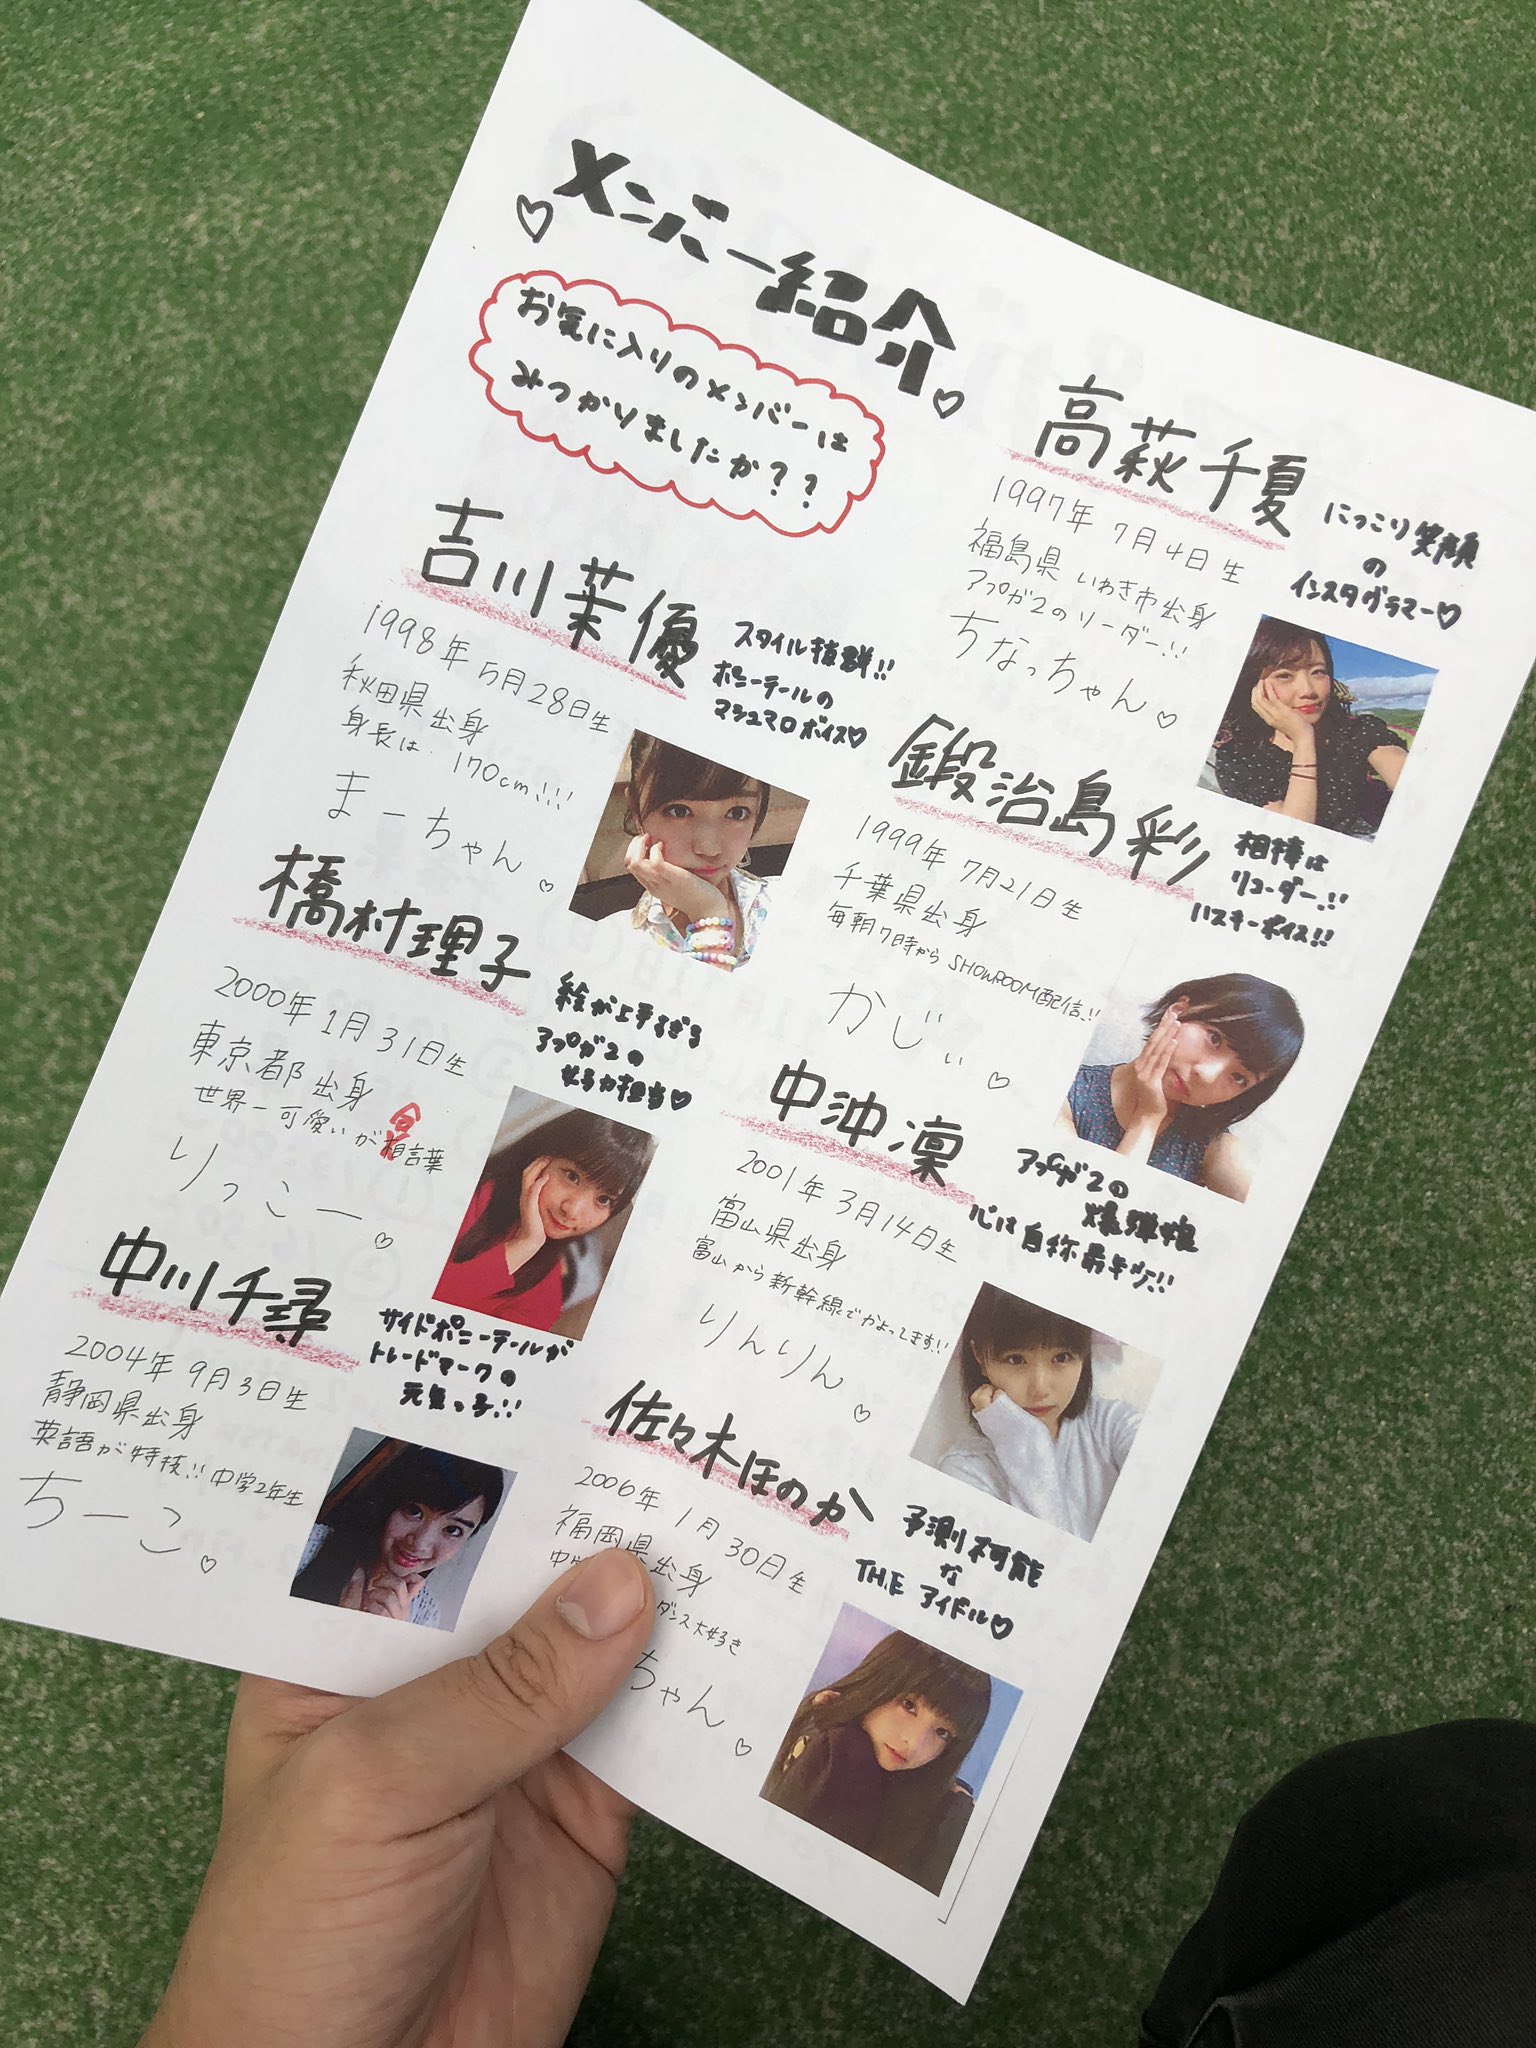 メンバー紹介
お気に入りのメンバーは
みつかりましたか??
高萩千夏
1997年 7月4日生
福島県 いわき市出身
アプガ2のリーダー!!
ちなっちゃん
にっこり笑顔
の
インスタグラマー
吉川茉優
1998年 5月28日生
秋田県出身
身長は 170cm!!!
まーちゃん
スタイル抜群!!
ポニーテールの
マシュマロボイス
鍛治島彩
1999年 7月21日生
千葉県出身
毎朝7時から SHOWROOM配信!!
かじぃ
相棒は
リコーダー!!
ハスキーボイス!!
橋村理子
2000年 1月31日生
東京都出身
世界一可愛いが合言葉
りっこー
絵が上手すぎる
アプガ2の
女子力担当
中沖凜
2001年 3月14日生
富山県出身
富山から新幹線でかよってます!!
りんりん
アプガ2の
爆弾娘
心は自称最年少!!
中川千尋
2004年 9月3日生
静岡県出身
英語が特技!! 中学2年生
ちーこ
サイドポニーテールが
トレードマークの
元気っ子!!
佐々木ほのか
2006年 1月30日生
福岡県出身
ダンス大好き
ちゃん
予測不可能
な
THE アイドル